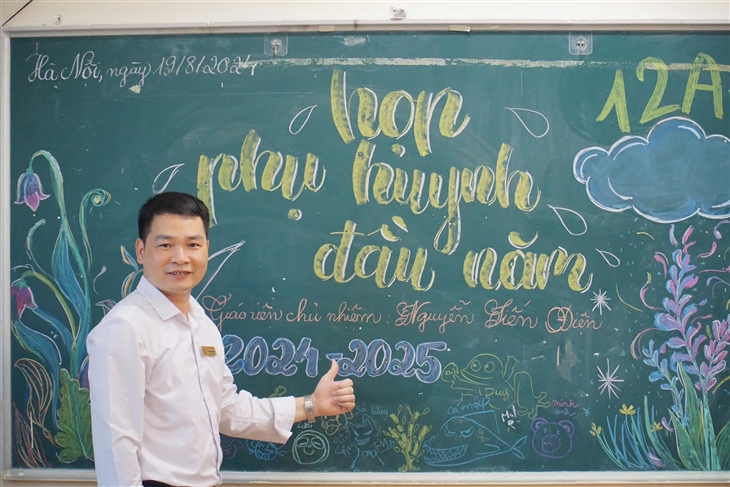 Hà Nội, ngày 19/8/2024
12A
họp
phụ huynh
đầu năm
Giáo viên chủ nhiệm: Nguyễn Tiến Diên
2024-2025
Duy
cá mập
minh
anh